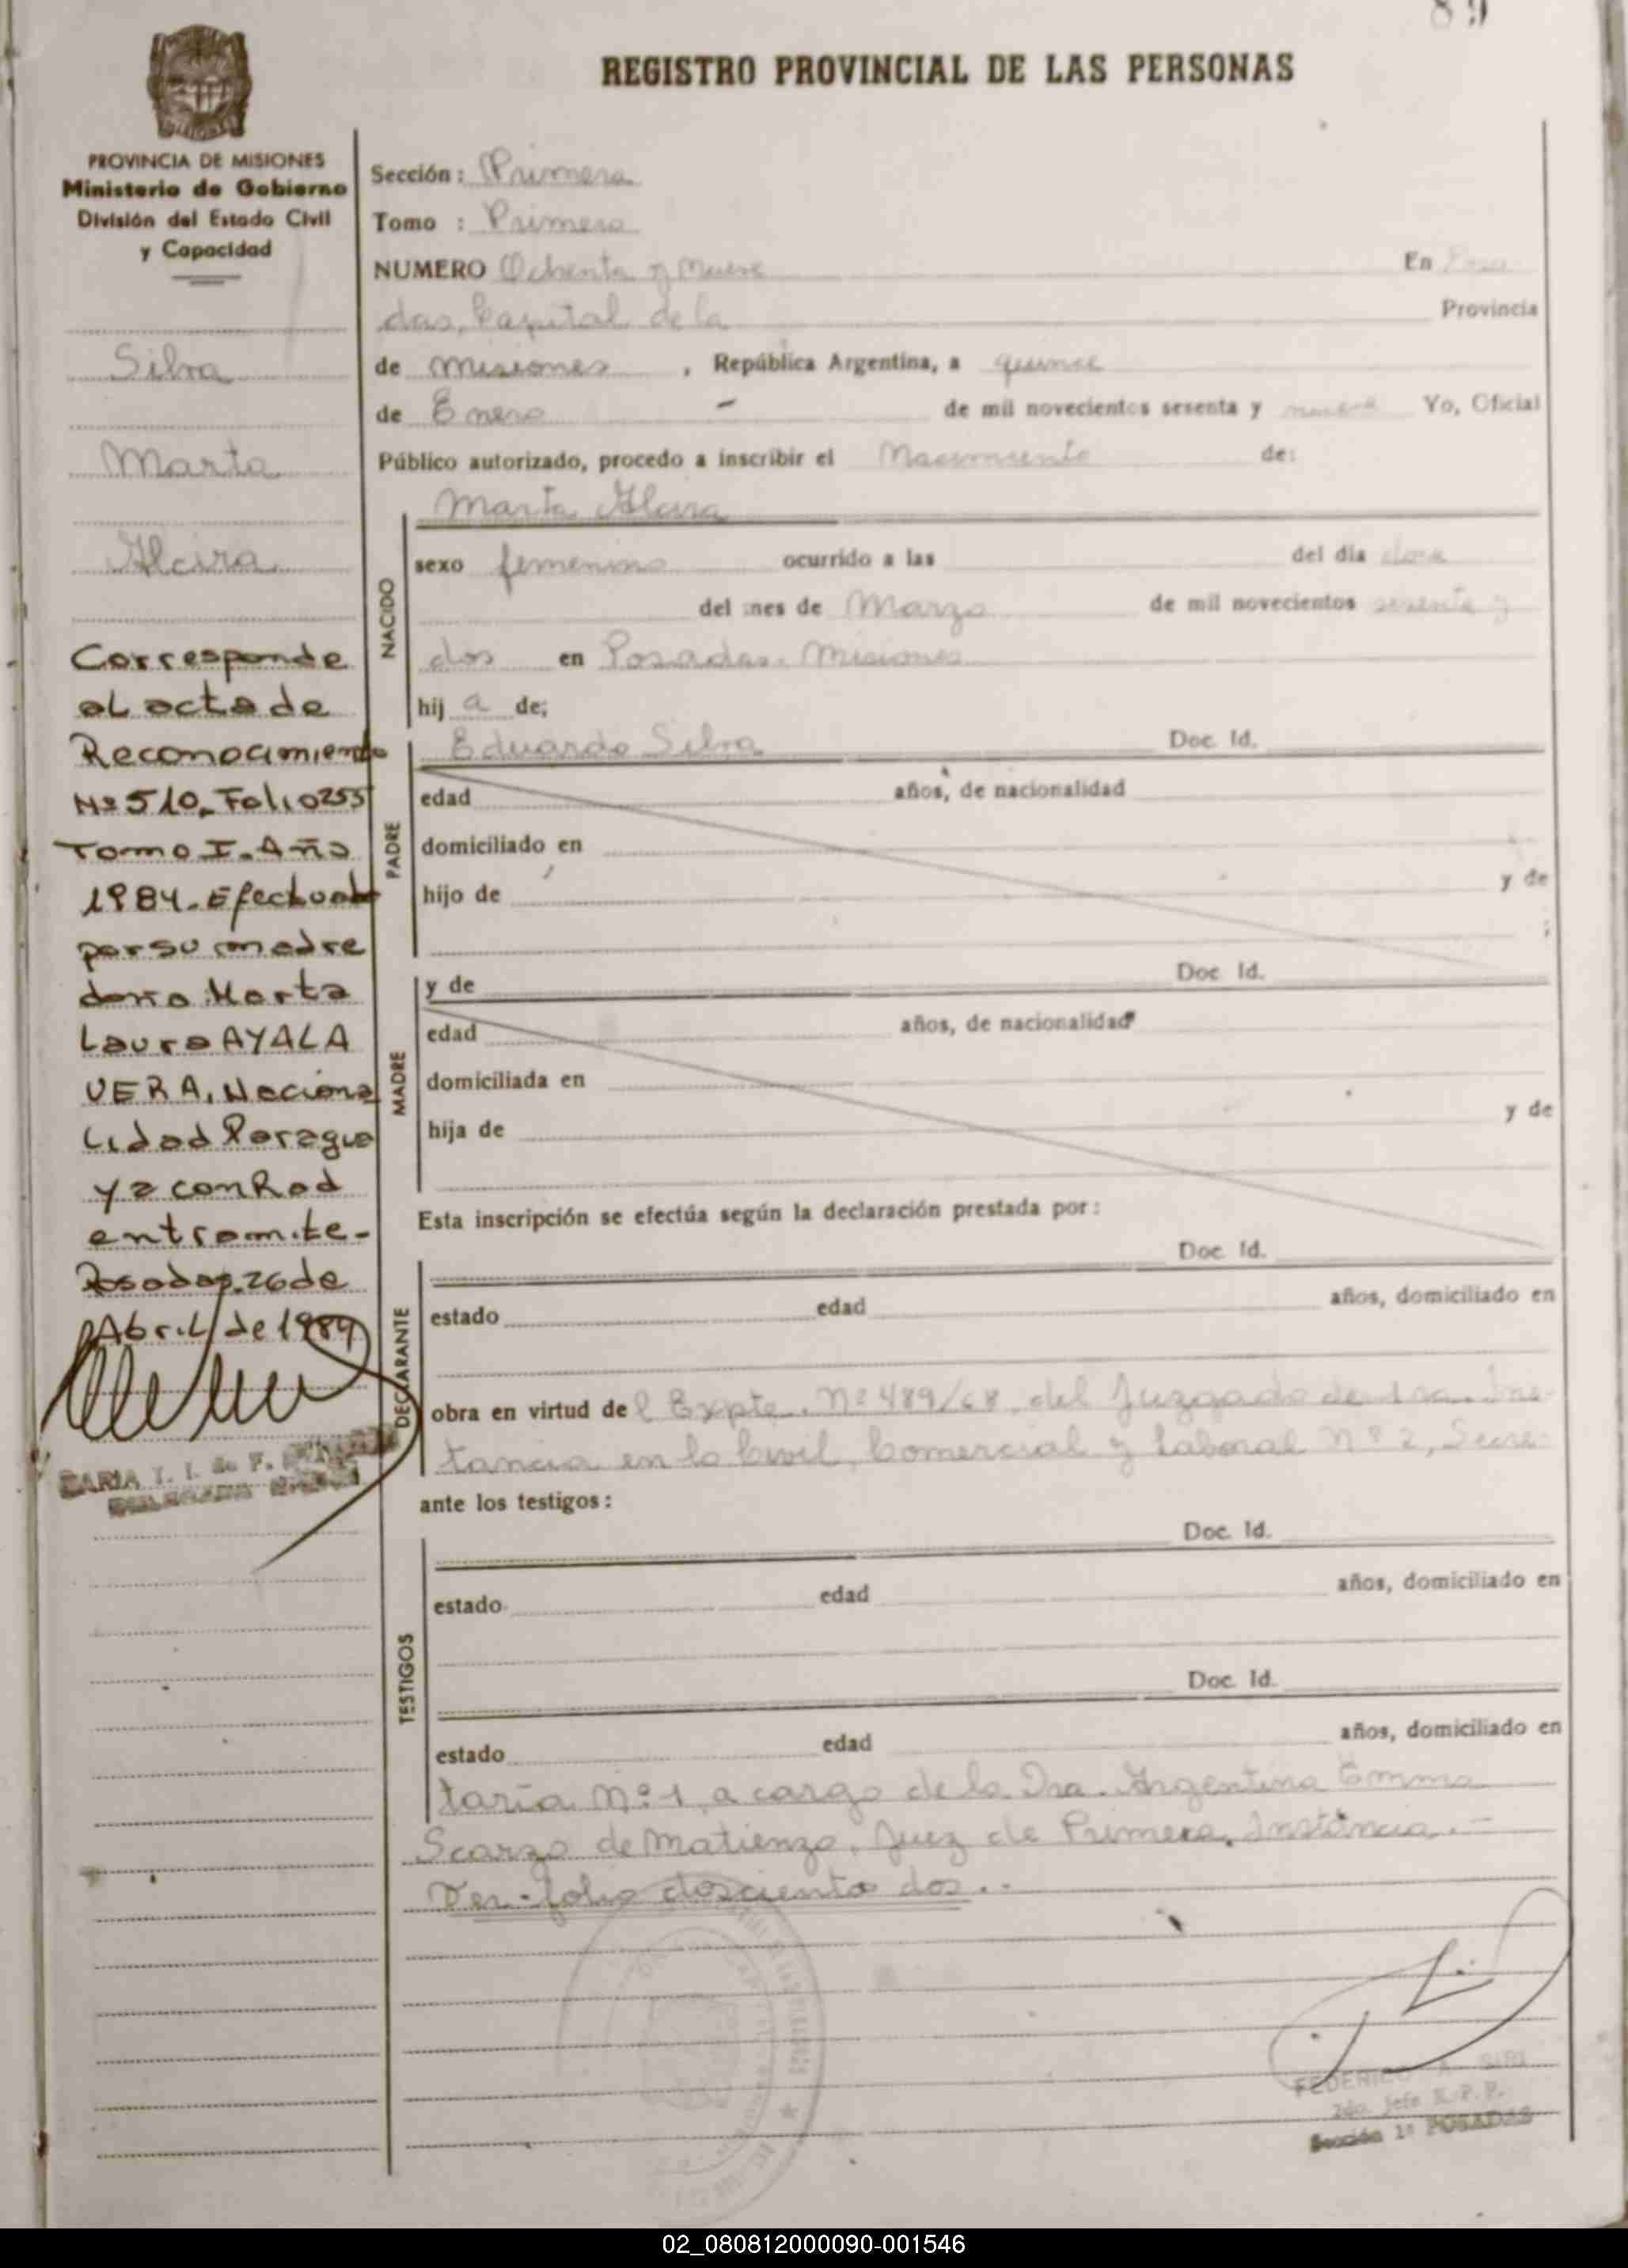 89
REGISTRO PROVINCIAL DE LAS PERSONAS
PROVINCIA DE MISIONES
Ministerio de Gobierno
División del Estado Civil
y Capacidad
Silva
Marta
Alcira
Corresponde
al acta de
Reconocimiento
Nº 510, Folio 255
Tomo I. Año
1984. Efectuado
por su madre
doña Marta
Laura AYALA
VERA, Naciona
Lidad Paragua
ya con Rad
en tramite-
Posadas, 26 de
Abril de 1984
Sección: Primera
Tomo : Primero
NUMERO Ochenta y Nueve En Posa
das, Capital de la Provincia
de Misiones , República Argentina, a quince
de Enero - de mil novecientos sesenta y nueve Yo, Oficial
Público autorizado, procedo a inscribir el Nacimiento de:
NACIDO
Marta Alcira
sexo femenino ocurrido a las del día doce
del mes de Marzo de mil novecientos sesenta y
dos en Posadas. Misiones
hij a de;
PADRE
Eduardo Silva Doc. Id.
edad años, de nacionalidad
domiciliado en
hijo de y de
;
MADRE
y de Doc. Id.
edad años, de nacionalidad
domiciliada en
hija de y de
Esta inscripción se efectúa según la declaración prestada por:
DECLARANTE
Doc. Id.
estado edad años, domiciliado en
obra en virtud de l Expte. Nº 489/68, del Juzgado de 1ra. Ins-
tancia en lo Civil, Comercial y Laboral Nº 2, Secre-
ante los testigos:
TESTIGOS
Doc. Id.
estado edad años, domiciliado en
Doc. Id.
estado edad años, domiciliado en
taría Nº 1, a cargo de la Dra. Argentina Emma
Scarzo de Matienzo, Juez de Primera Instancia.-
Ver folio doscientos dos..
FEDERICO A. SIRI
2do. Jefe R.P.P.
Sección 1ª POSADAS
02_080812000090-001546